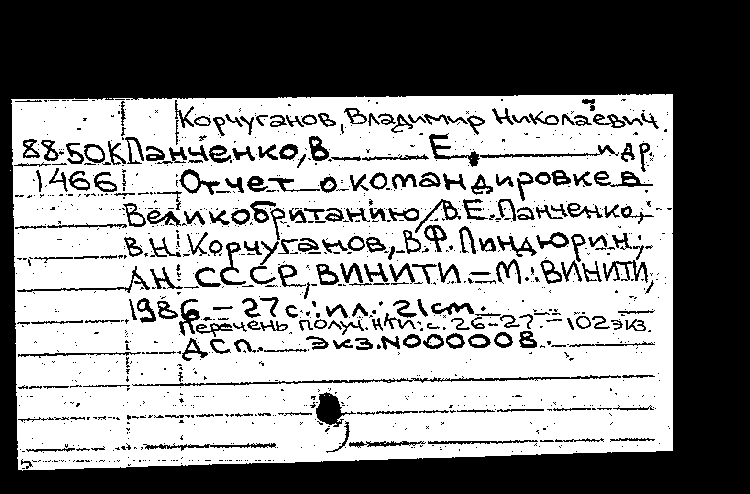 Корчуганов, Владимир Николаевич
88-50К Панченко, В Е. и др.
1466 Отчет о командировке в
Великобританию / В.Е. Панченко,
В.Н. Корчуганов, В.Ф. Пиндюрин;
АН СССР, ВИНИТИ. – М.: ВИНИТИ,
1986. – 27 с.: ил.; 21 cm.
Перечень получ. НТИ: с. 26-27. – 102 экз.
ДСП. Экз. N000008.